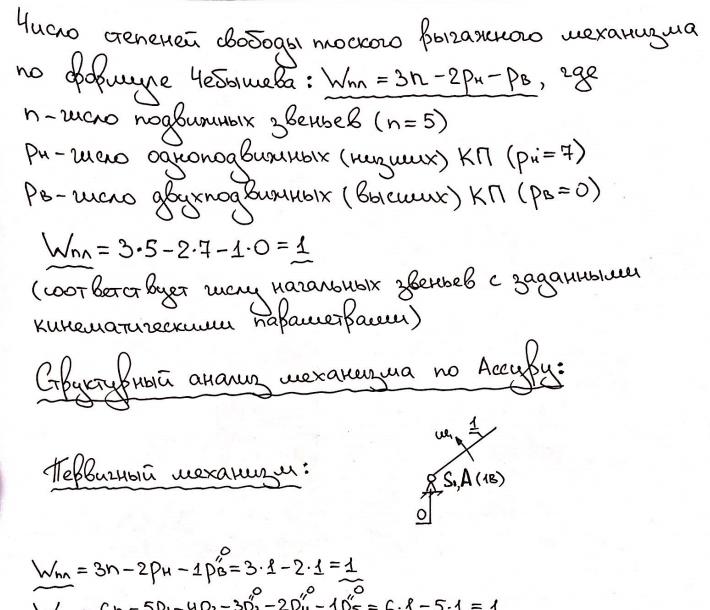 Число степеней свободы плоского рычажного механизма
по формуле Чебышева: Wпл = 3n − 2pн − pв, где
n – число подвижных звеньев (n = 5)
pн – число одноподвижных (низших) КП (pн = 7)
pв – число двухподвижных (высших) КП (pв = 0)
Wпл = 3·5 − 2·7 − 1·0 = 1
(соответствует числу начальных звеньев с заданными
кинематическими параметрами)
Структурный анализ механизма по Ассуру:
ω₁ 1
Первичный механизм:
S₁, A (1В)
0
0
Wпл = 3n − 2pн − 1pв = 3·1 − 2·1 = 1
0 0 0